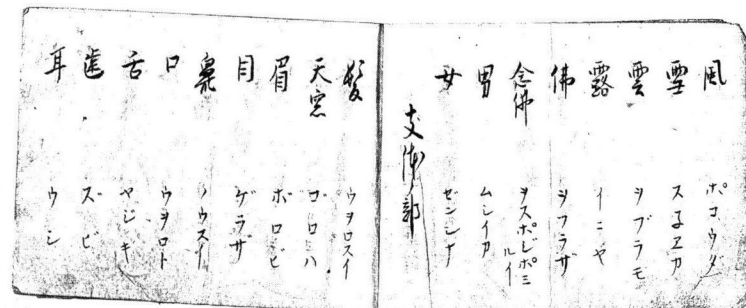 風 ポコウダ
雪 スネヱカ
雲 ヲブラモ
露 イニヤ
佛 ヲフラザ
念佛 ヲスポジポミルイ
男 ムシイカ
女 ゼンシナ
支体部
髪 ウヲロスイ
天窓 ゴロミハ
眉 ボロビ
目 ゲラザ
鼻 ノウスイ
口 ウヲロト
舌 ヤジキ
歯 ズビ
耳 ウシ